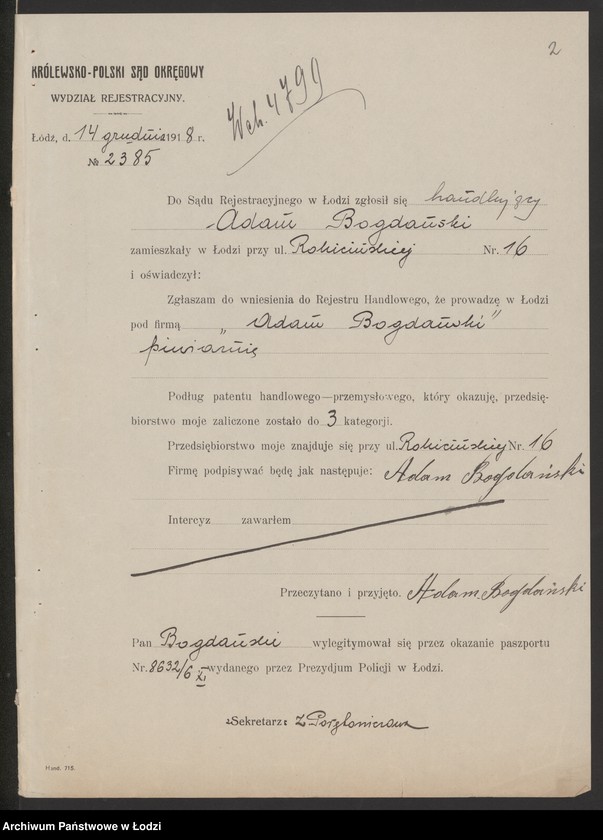 2
KRÓLEWSKO-POLSKI SĄD OKRĘGOWY
WYDZIAŁ REJESTRACYJNY.
Wch. 4799
Łódź, d. 14 grudnia 1918 r.
№ 2385
Do Sądu Rejestracyjnego w Łodzi zgłosił się handlujący
Adam Bogdański
zamieszkały w Łodzi przy ul. Rokicińskiej Nr. 16
i oświadczył:
Zgłaszam do wniesienia do Rejestru Handlowego, że prowadzę w Łodzi
pod firmą „Adam Bogdański"
piwiarnię
Podług patentu handlowego—przemysłowego, który okazuję, przedsię-
biorstwo moje zaliczone zostało do 3 kategorji.
Przedsiębiorstwo moje znajduje się przy ul. Rokicińskiej Nr. 16
Firmę podpisywać będę jak następuje: Adam Bogdański
Intercyz zawarłem
Przeczytano i przyjęto. Adam Bogdański
Pan Bogdański wylegitymował się przez okazanie paszportu
Nr. 8632/6 XI wydanego przez Prezydjum Policji w Łodzi.
Sekretarz:
Hand. 715.
Archiwum Państwowe w Łodzi